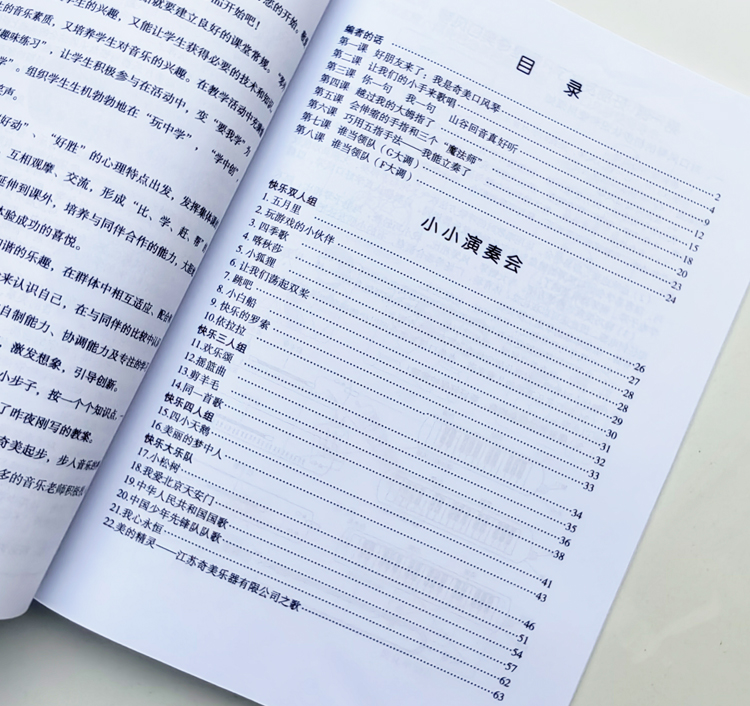 的开始，
品开始吧！
就要建立良好的课堂常规。
学生的兴趣，又能让学生获得必要的技术和知识
的音乐素质，又培养学生对音乐的兴趣。在教学活动中
趣味练习”，让学生积极参与在活动中，变“要我学”为
学”。组织学生生机勃勃地在“玩中学”，“学中创”，
笑声。
好动”、“好胜”的心理特点出发，发挥集体
互相观摩、交流，形成“比、学、赶、帮”
延伸到课外，培养与同伴合作的能力，
体验成功的喜悦。
和谐的乐趣，在群体中相互适应、配合
来认识自己，在与同伴的比较中认
自制能力、协调能力及专注的学
激发想象，引导创新。
小步子，按一个个知识点
了昨夜刚写的教案。
奇美起步，步入音乐的
多的音乐老师积极
目 录
编者的话 2
第一课 好朋友来了：我是奇美口风琴 4
第二课 让我们的小手来歌唱 9
第三课 你一句 我一句 山谷回音真好听 12
第四课 越过我的大姆指了 15
第五课 会伸缩的手指和三个“魔法师” 18
第六课 巧用五指手法——我能立奏了 20
第七课 谁当领队（G大调） 23
第八课 谁当领队（F大调） 24
小小演奏会
快乐双人组
1. 五月里 26
2. 玩游戏的小伙伴 27
3. 四季歌 28
4. 喀秋莎 28
5. 小狐狸 29
6. 让我们荡起双桨 30
7. 跳吧 31
8. 小白船 32
9. 快乐的罗索 33
10.依拉拉 33
快乐三人组
11.欢乐颂 34
12.摇蓝曲 35
13.剪羊毛 36
14.同一首歌 38
快乐四人组
15.四小天鹅 41
16.美丽的梦中人 43
快乐大乐队
17.小松树 46
18.我爱北京天安门 51
19.中华人民共和国国歌 54
20.中国少年先锋队队歌 57
21.我心永恒 62
22.美的精灵——江苏奇美乐器有限公司之歌 63